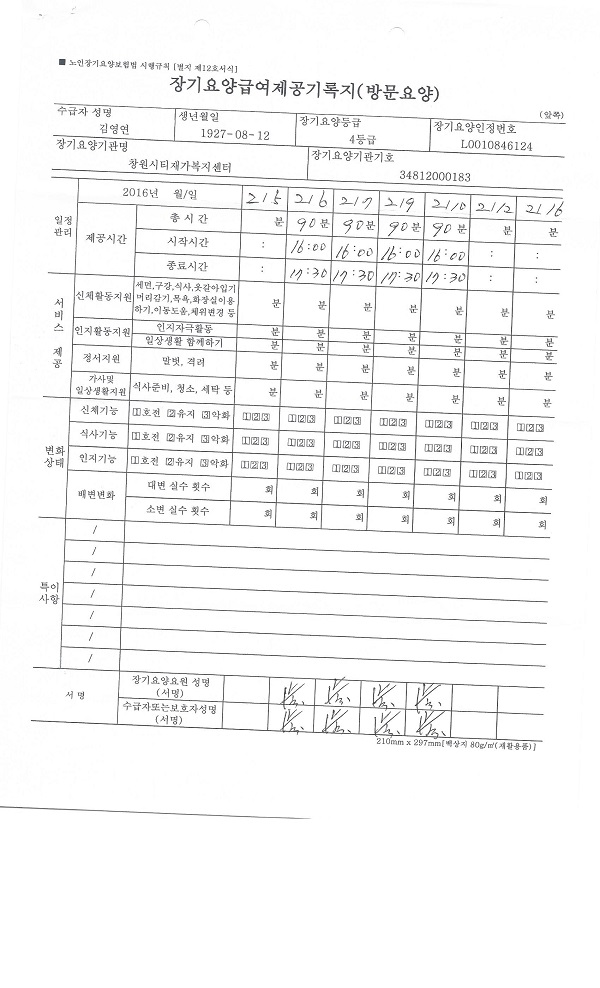 ■ 노인장기요양보험법 시행규칙 [별지 제12호서식]
장기요양급여제공기록지(방문요양)
(앞쪽)
수급자 성명 생년월일 장기요양등급 장기요양인정번호
김영연 1927-08-12 4등급 L0010846124
장기요양기관명 장기요양기관기호
창원시티재가복지센터 34812000183
일정관리 2016년 월/일 2/5 2/6 2/7 2/9 2/10 2/12 2/16
제공시간 총 시 간 분 90분 90분 90분 90분 분 분
시작시간 : 16:00 16:00 16:00 16:00 : :
종료시간 : 17:30 17:30 17:30 17:30 : :
서비스 제공
신체활동지원 세면,구강,식사,옷갈아입기
머리감기,목욕,화장실이용
하기,이동도움,체위변경 등 분 분 분 분 분 분 분
인지활동지원 인지자극활동 분 분 분 분 분 분 분
일상생활 함께하기 분 분 분 분 분 분 분
정서지원 말벗, 격려 분 분 분 분 분 분 분
가사및
일상생활지원 식사준비, 청소, 세탁 등 분 분 분 분 분 분 분
변화상태
신체기능 1호전 2유지 3악화 123 123 123 123 123 123 123
식사기능 1호전 2유지 3악화 123 123 123 123 123 123 123
인지기능 1호전 2유지 3악화 123 123 123 123 123 123 123
배변변화 대변 실수 횟수 회 회 회 회 회 회 회
소변 실수 횟수 회 회 회 회 회 회 회
특이사항
/
/
/
/
/
/
/
서 명
장기요양요원 성명
(서명)
수급자또는보호자성명
(서명)
210mm x 297mm[백상지 80g/㎡(재활용품)]